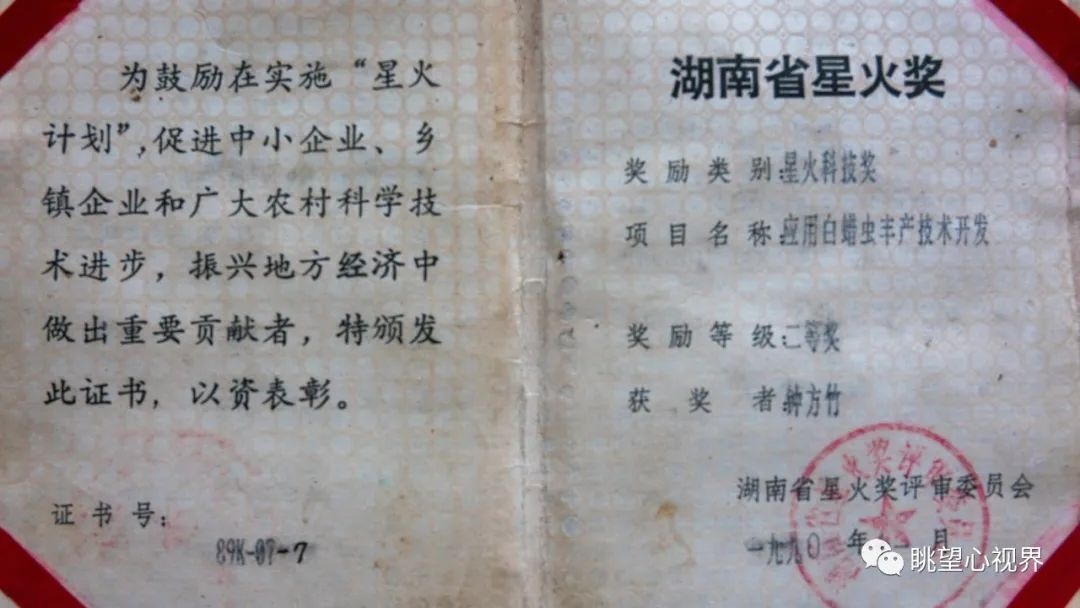 为鼓励在实施“星火
计划”,促进中小企业、乡
镇企业和广大农村科学技
术进步，振兴地方经济中
做出重要贡献者，特颁发
此证书，以资表彰。
证书号：
89K-07-7
湖南省星火奖
奖励类别:星火科技奖
项目名称:应用白蜡虫丰产技术开发
奖励等级:二等奖
获奖者:钟方竹
湖南省星火奖评审委员会
一九九〇年 月
眺望心视界